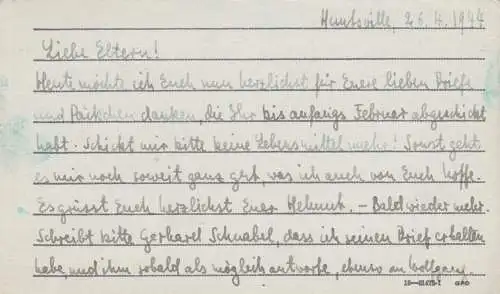 Huntsville, 26.4.1944
Liebe Eltern!
Heute möchte ich Euch nun herzlichst für Euere lieben Briefe
und Päckchen danken, die Ihr bis anfangs Februar abgeschickt
habt. Schickt mir bitte keine Lebensmittel mehr! Sonst geht
es mir noch soweit ganz gut, was ich auch von Euch hoffe.
Es grüsst Euch herzlichst Euer Helmut. – Bald wieder mehr.
Schreibt bitte Gerhard Schnabel, dass ich seinen Brief erhalten
habe, und ihm sobald als möglich antworte, ebenso an Wolfgang.